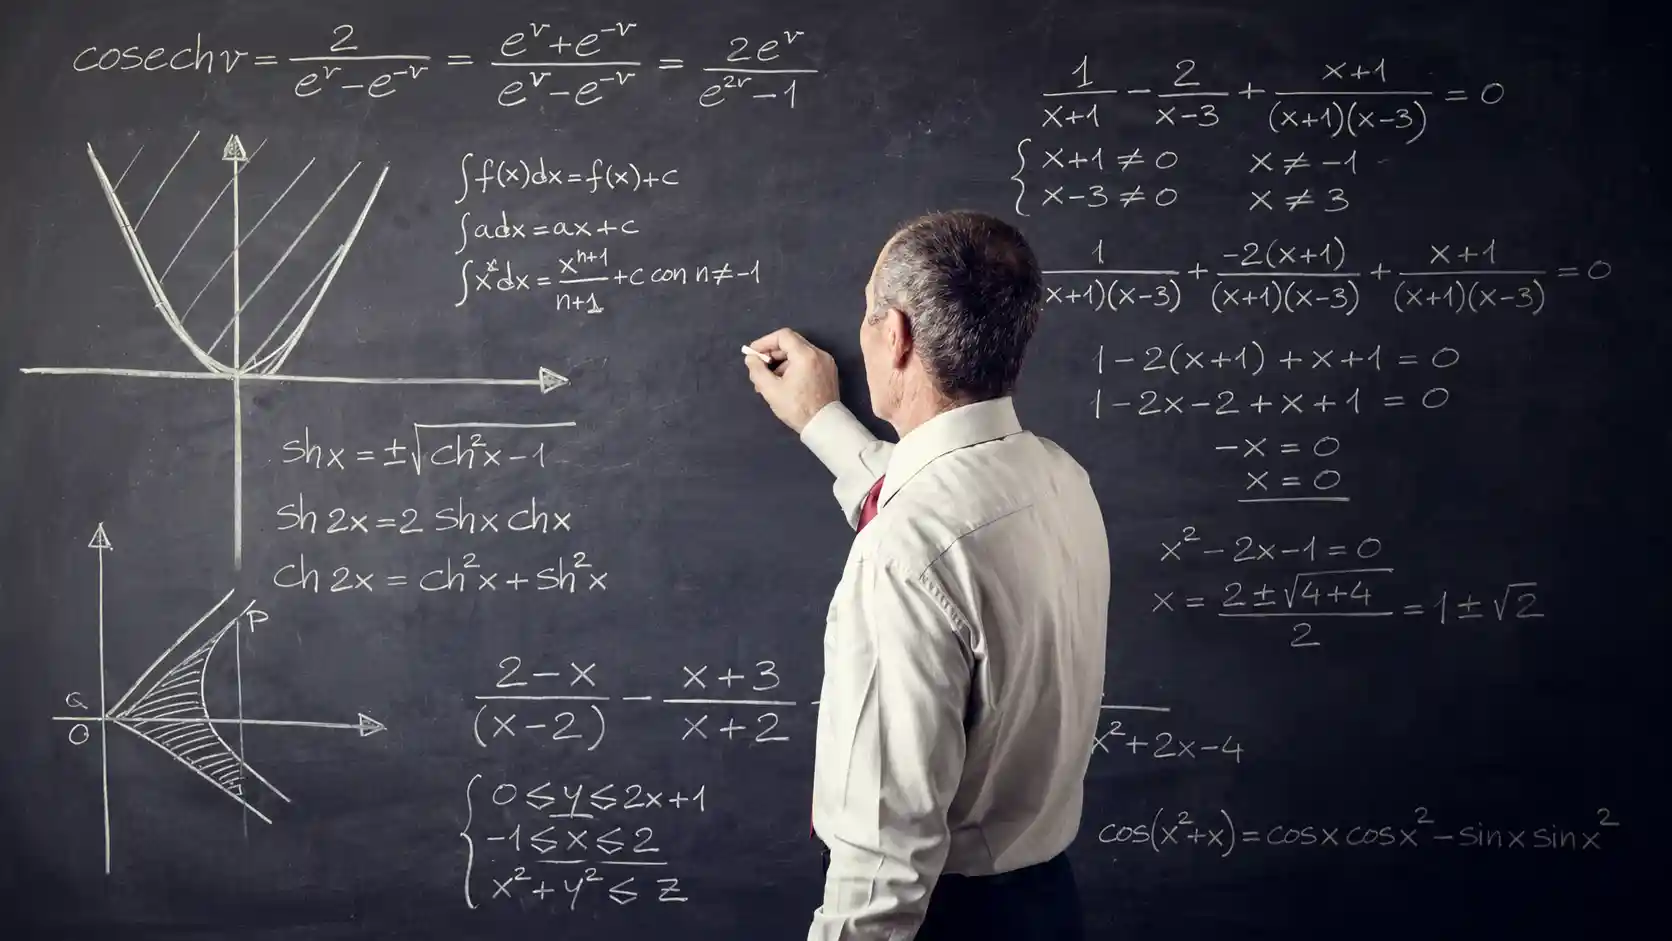 cosechv = 2/(e^v - e^-v) = (e^v + e^-v)/(e^v - e^-v) = 2e^v/(e^2v - 1)
∫f(x)dx = f(x)+c
∫adx = ax+c
∫x^x dx = x^(n+1)/(n+1) + c con n ≠ -1
shx = ±√(ch²x - 1)
sh 2x = 2 shx chx
ch 2x = ch²x + sh²x
P
G
O
(2-x)/(x-2) - (x+3)/(x+2) -
x²+2x-4
{ 0 ≤ y ≤ 2x+1
-1 ≤ x ≤ 2
x² + y² ≤ z
1/(x+1) - 2/(x-3) + (x+1)/((x+1)(x-3)) = 0
{ x+1 ≠ 0 x ≠ -1
x-3 ≠ 0 x ≠ 3
1/(x+1)(x-3) + -2(x+1)/((x+1)(x-3)) + (x+1)/((x+1)(x-3)) = 0
1 - 2(x+1) + x+1 = 0
1 - 2x - 2 + x + 1 = 0
-x = 0
x = 0
x² - 2x - 1 = 0
x = (2 ± √(4+4))/2 = 1 ± √2
cos(x²+x) = cosx cosx² - sinx sinx²